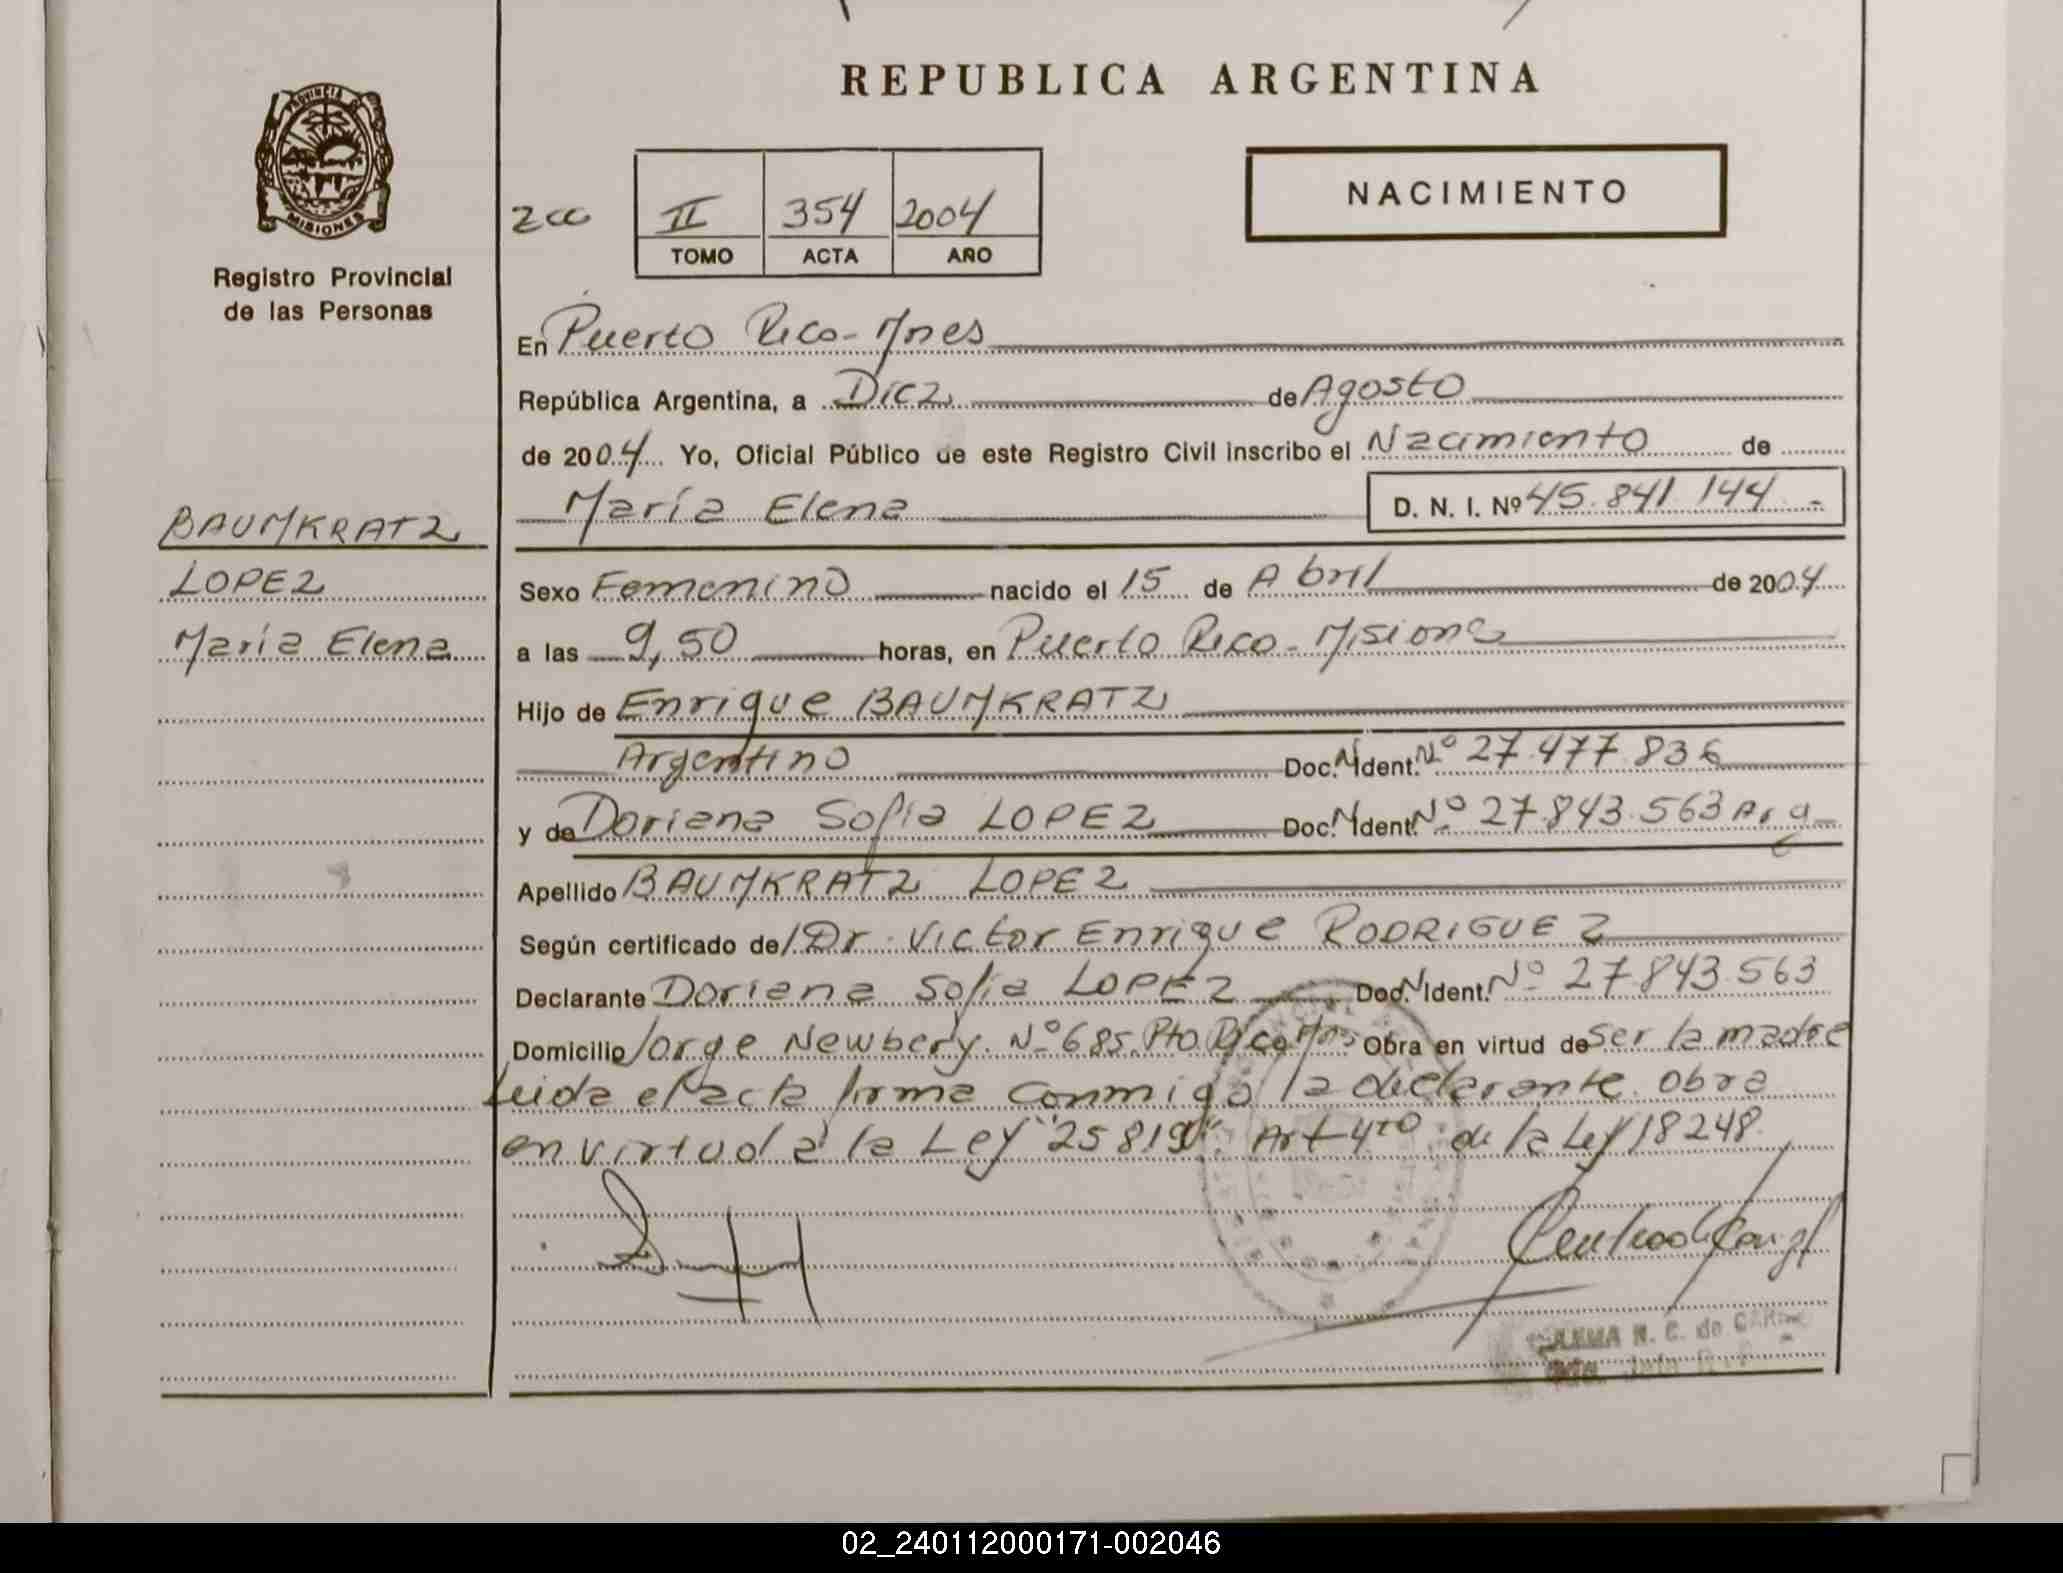 REPUBLICA ARGENTINA
PROVINCIA DE
MISIONES
Registro Provincial
de las Personas
II 354 2004
TOMO ACTA AÑO
NACIMIENTO
En Puerto Rico-Mnes
República Argentina, a Diez de Agosto
de 2004 Yo, Oficial Público de este Registro Civil inscribo el Nacimiento de
María Elena D. N. I. Nº 45.841.144 -
BAUMKRATZ
LOPEZ
María Elena
Sexo Femenino nacido el 15 de Abril de 2004
a las 9,50 horas, en Puerto Rico-Misiones
Hijo de Enrique BAUMKRATZ
Argentino Doc. N Ident. Nº 27.477.836
y de Doriana Sofia LOPEZ Doc. N Ident. Nº 27.843.563 Arg
Apellido BAUMKRATZ LOPEZ
Según certificado de Dr. Victor Enrique RODRIGUEZ
Declarante Doriana Sofia LOPEZ Doc. N Ident. Nº 27.843.563
Domicilio Jorge Newbery. Nº 685. Pto Rico Mnes Obra en virtud de ser la madre
Leida el acta firma conmigo la declarante. obra
en virtud a la Ley "25819". Art 4to de la Ley 18248.
N. C. de
02_240112000171-002046